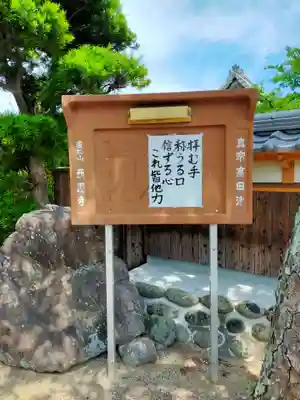 真宗高田派
拝む手
称うる口
信ずる心
これ皆他力